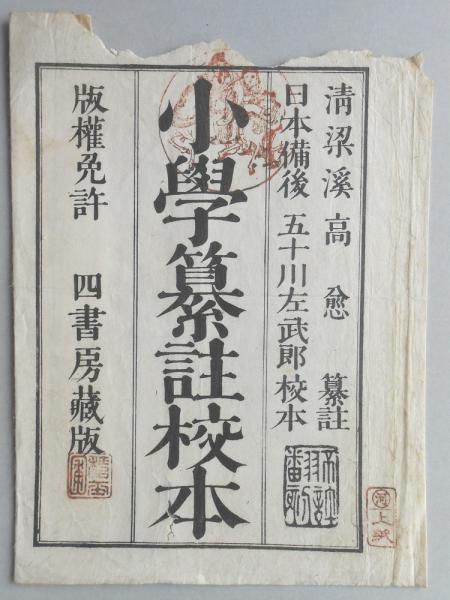 清梁溪高愈纂註
日本備後五十川左武郎校本
小學纂註校本
版權免許 四書房藏版